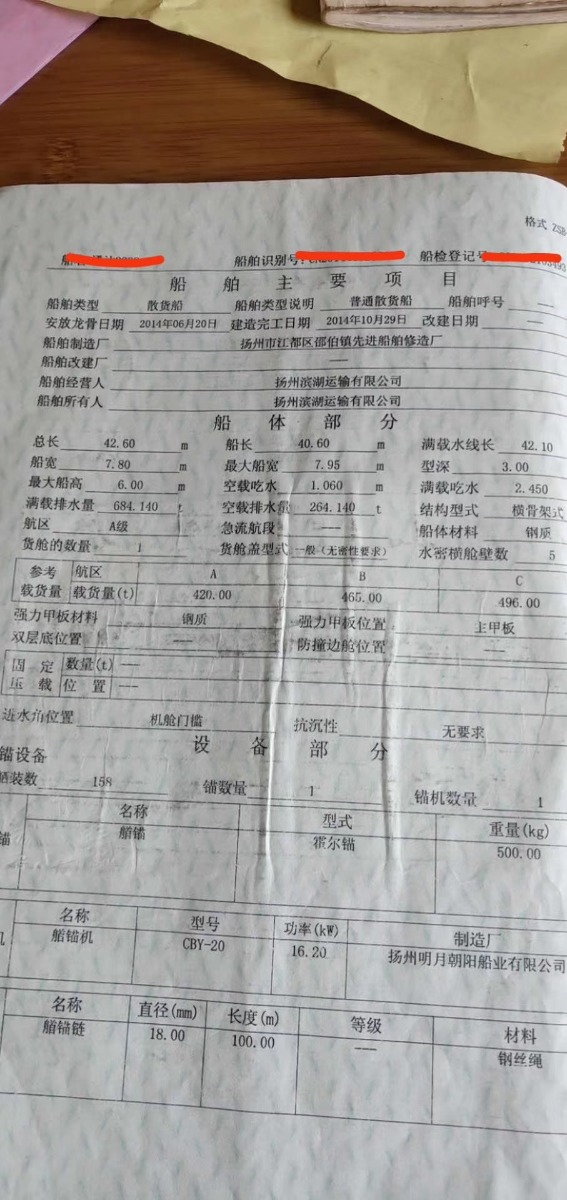 格式 ZSB
船舶识别号: 船检登记号
船舶主要项目
船舶类型 散货船 船舶类型说明 普通散货船 船舶呼号 ——
安放龙骨日期 2014年06月20日 建造完工日期 2014年10月29日 改建日期 ——
船舶制造厂 扬州市江都区邵伯镇先进船舶修造厂
船舶改建厂 ——
船舶经营人 扬州滨湖运输有限公司
船舶所有人 扬州滨湖运输有限公司
船体部分
总长 42.60 m 船长 40.60 m 满载水线长 42.10
船宽 7.80 m 最大船宽 7.95 m 型深 3.00
最大船高 6.00 m 空载吃水 1.060 m 满载吃水 2.450
满载排水量 684.140 t 空载排水量 264.140 t 结构型式 横骨架式
航区 A级 急流航段 —— 船体材料 钢质
货舱的数量 1 货舱盖型式 一般(无密性要求) 水密横舱壁数 5
参考 航区 A B C
载货量 载货量(t) 420.00 465.00 496.00
强力甲板材料 钢质 强力甲板位置 主甲板
双层底位置 —— 防撞边舱位置 ——
固定 数量(t) ——
压载 位置 ——
进水角位置 机舱门槛 抗沉性 无要求
设备部分
锚设备
舾装数 158 锚数量 1 锚机数量 1
名称 型式 重量(kg)
锚 艏锚 霍尔锚 500.00
名称 型号 功率(kW) 制造厂
机 艏锚机 CBY-20 16.20 扬州明月朝阳船业有限公司
名称 直径(mm) 长度(m) 等级 材料
艏锚链 18.00 100.00 —— 钢丝绳